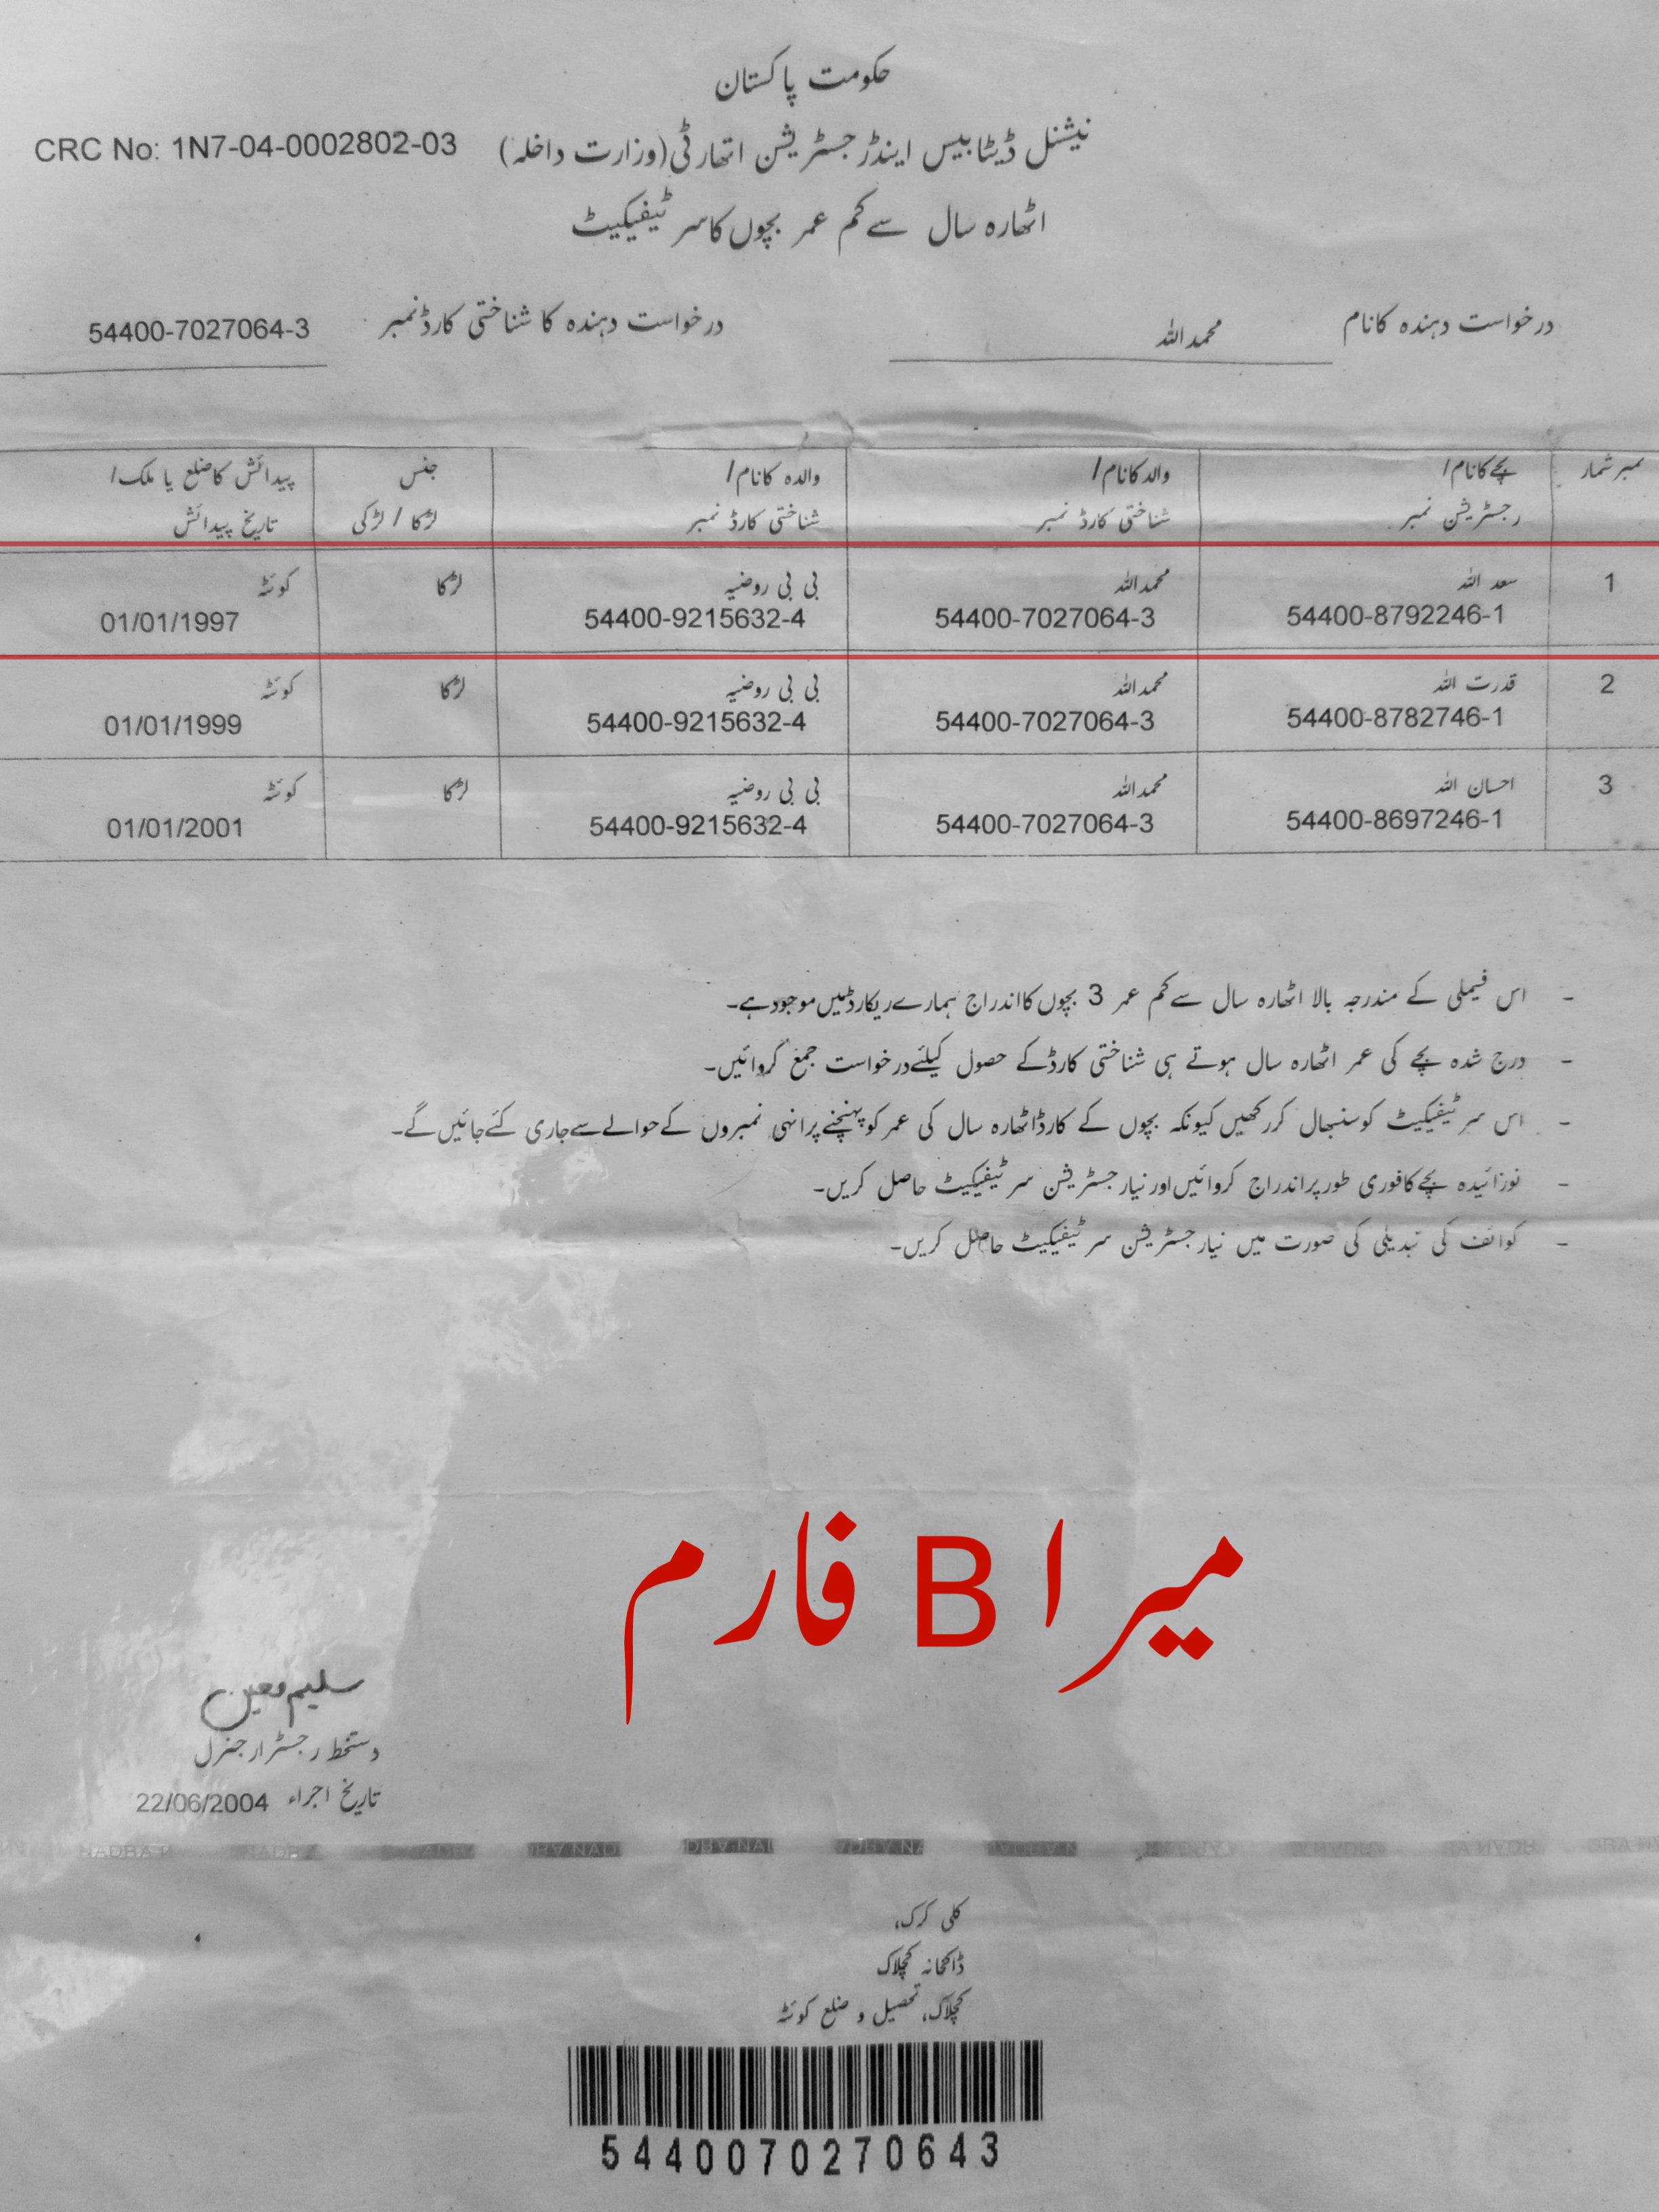 حکومت پاکستان
نیشنل ڈیٹابیس اینڈ رجسٹریشن اتھارٹی (وزارت داخلہ) CRC No: 1N7-04-0002802-03
اٹھارہ سال سے کم عمر بچوں کا سرٹیفیکیٹ
درخواست دہندہ کا نام محمداللہ درخواست دہندہ کا شناختی کارڈ نمبر 54400-7027064-3
نمبر شمار بچے کا نام/ والد کا نام/ والدہ کا نام/ جنس پیدائش کا ضلع یا ملک/
رجسٹریشن نمبر شناختی کارڈ نمبر شناختی کارڈ نمبر لڑکا / لڑکی تاریخ پیدائش
1 سعد اللہ محمداللہ بی بی روضیہ لڑکا کوئٹہ
54400-8792246-1 54400-7027064-3 54400-9215632-4 01/01/1997
2 قدرت اللہ محمداللہ بی بی روضیہ لڑکا کوئٹہ
54400-8782746-1 54400-7027064-3 54400-9215632-4 01/01/1999
3 احسان اللہ محمداللہ بی بی روضیہ لڑکا کوئٹہ
54400-8697246-1 54400-7027064-3 54400-9215632-4 01/01/2001
- اس فیملی کے مندرجہ بالا اٹھارہ سال سے کم عمر 3 بچوں کا اندراج ہمارے ریکارڈ میں موجود ہے۔
- درج شدہ بچے کی عمر اٹھارہ سال ہوتے ہی شناختی کارڈ کے حصول کیلئے درخواست جمع کروائیں۔
- اس سرٹیفیکیٹ کو سنبھال کر رکھیں کیونکہ بچوں کے کارڈ اٹھارہ سال کی عمر کو پہنچنے پر انہی نمبروں کے حوالے سے جاری کئے جائیں گے۔
- نوزائیدہ بچے کا فوری طور پر اندراج کروائیں اور نیا رجسٹریشن سرٹیفیکیٹ حاصل کریں۔
- کوائف کی تبدیلی کی صورت میں نیا رجسٹریشن سرٹیفیکیٹ حاصل کریں۔
میرا B فارم
سلیم معین
دستخط رجسٹرار جنرل
تاریخ اجراء 22/06/2004
کلی کرک،
ڈاکخانہ کچلاک
کچلاک، تحصیل و ضلع کوئٹہ
5440070270643